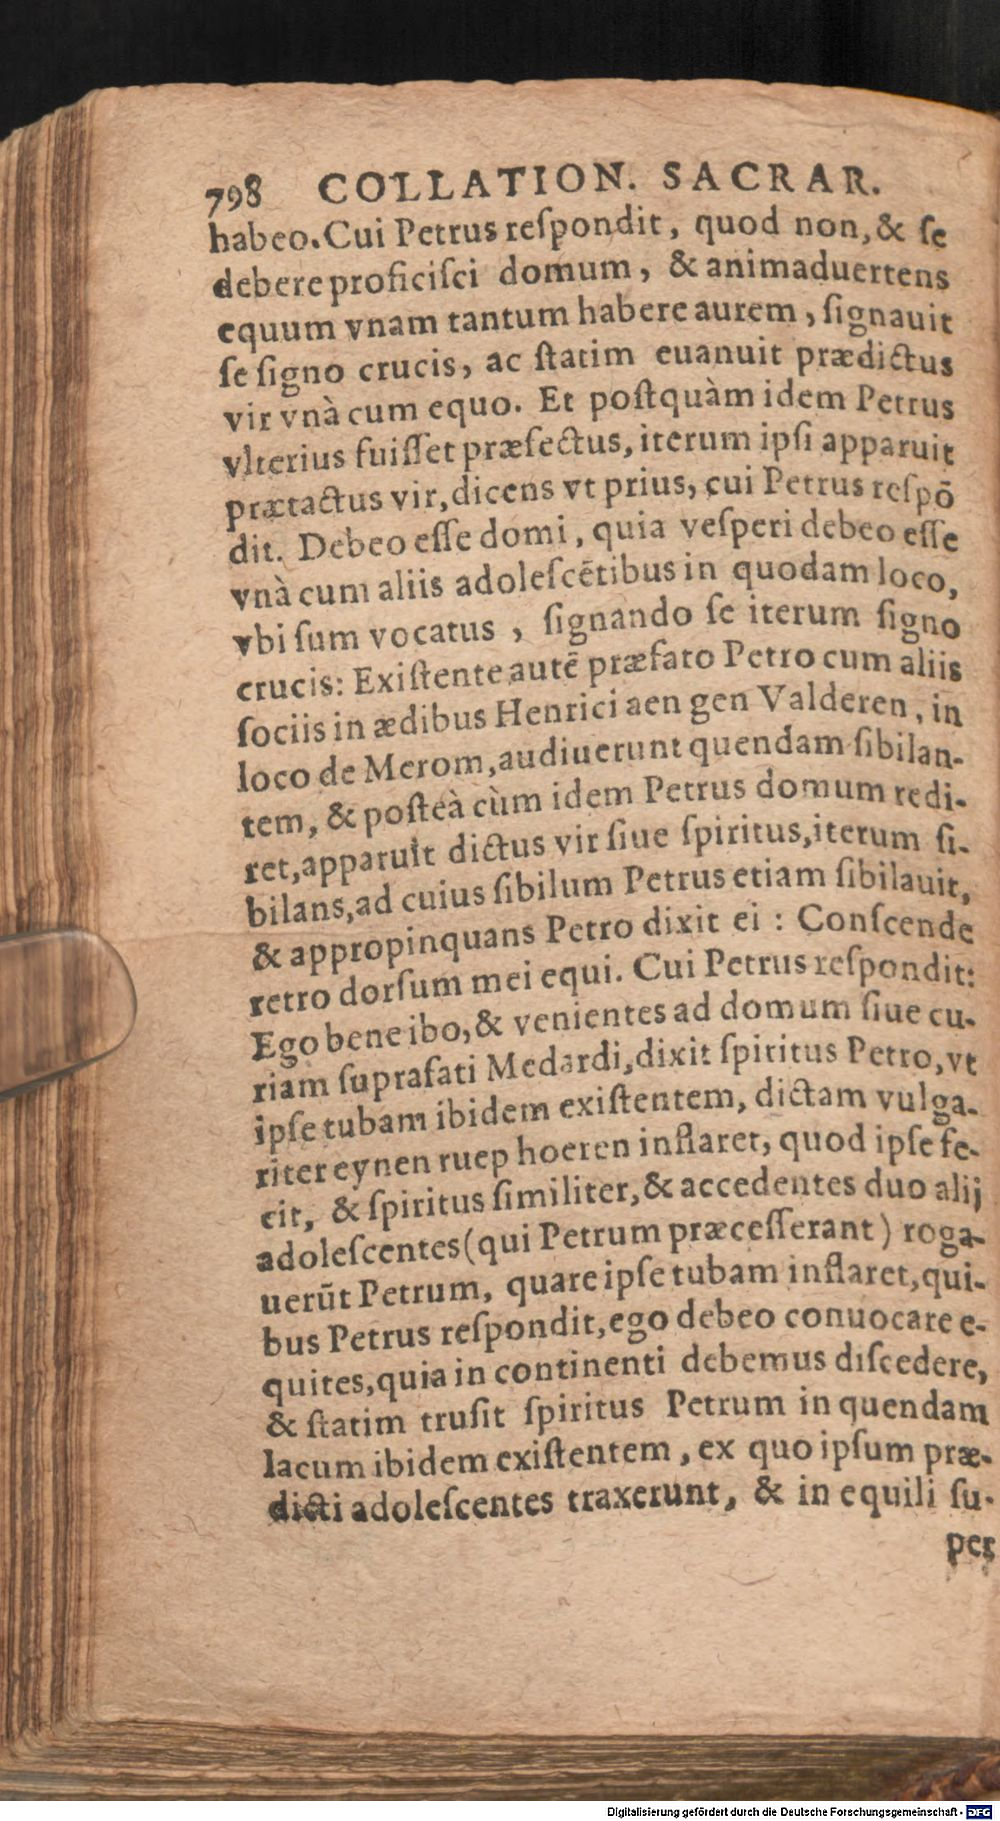 798 COLLATION. SACRAR.
habeo. Cui Petrus reſpondit, quod non, & ſe
debere proficiſci domum, & animaduertens
equum vnam tantum habere aurem, ſignauit
ſe ſigno crucis, ac ſtatim euanuit prædictus
vir vnà cum equo. Et poſtquàm idem Petrus
vlterius fuiſſet præfectus, iterum ipſi apparuit
prætactus vir, dicens vt prius, cui Petrus reſpō
dit. Debeo eſſe domi, quia veſperi debeo eſſe
vnà cum aliis adoleſcētibus in quodam loco,
vbi ſum vocatus, ſignando ſe iterum ſigno
crucis: Exiſtente autē præfato Petro cum aliis
ſociis in ædibus Henrici aen gen Valderen, in
loco de Merom, audiuerunt quendam ſibilan-
tem, & poſteà cùm idem Petrus domum redi-
ret, apparuit dictus vir ſiue ſpiritus, iterum ſi-
bilans, ad cuius ſibilum Petrus etiam ſibilauit,
& appropinquans Petro dixit ei : Conſcende
retro dorſum mei equi. Cui Petrus reſpondit:
Ego bene ibo, & venientes ad domum ſiue cu-
riam ſuprafati Medardi, dixit ſpiritus Petro, vt
ipſe tubam ibidem exiſtentem, dictam vulga-
riter eynen ruep hoeren inflaret, quod ipſe fe-
cit, & ſpiritus ſimiliter, & accedentes duo alij
adoleſcentes (qui Petrum præceſſerant) roga-
uerūt Petrum, quare ipſe tubam inflaret, qui-
bus Petrus reſpondit, ego debeo conuocare e-
quites, quia in continenti debemus diſcedere,
& ſtatim truſit ſpiritus Petrum in quendam
lacum ibidem exiſtentem, ex quo ipſum præ-
dicti adoleſcentes traxerunt, & in equili ſu-
per
Digitalisierung gefördert durch die Deutsche Forschungsgemeinschaft - DFG